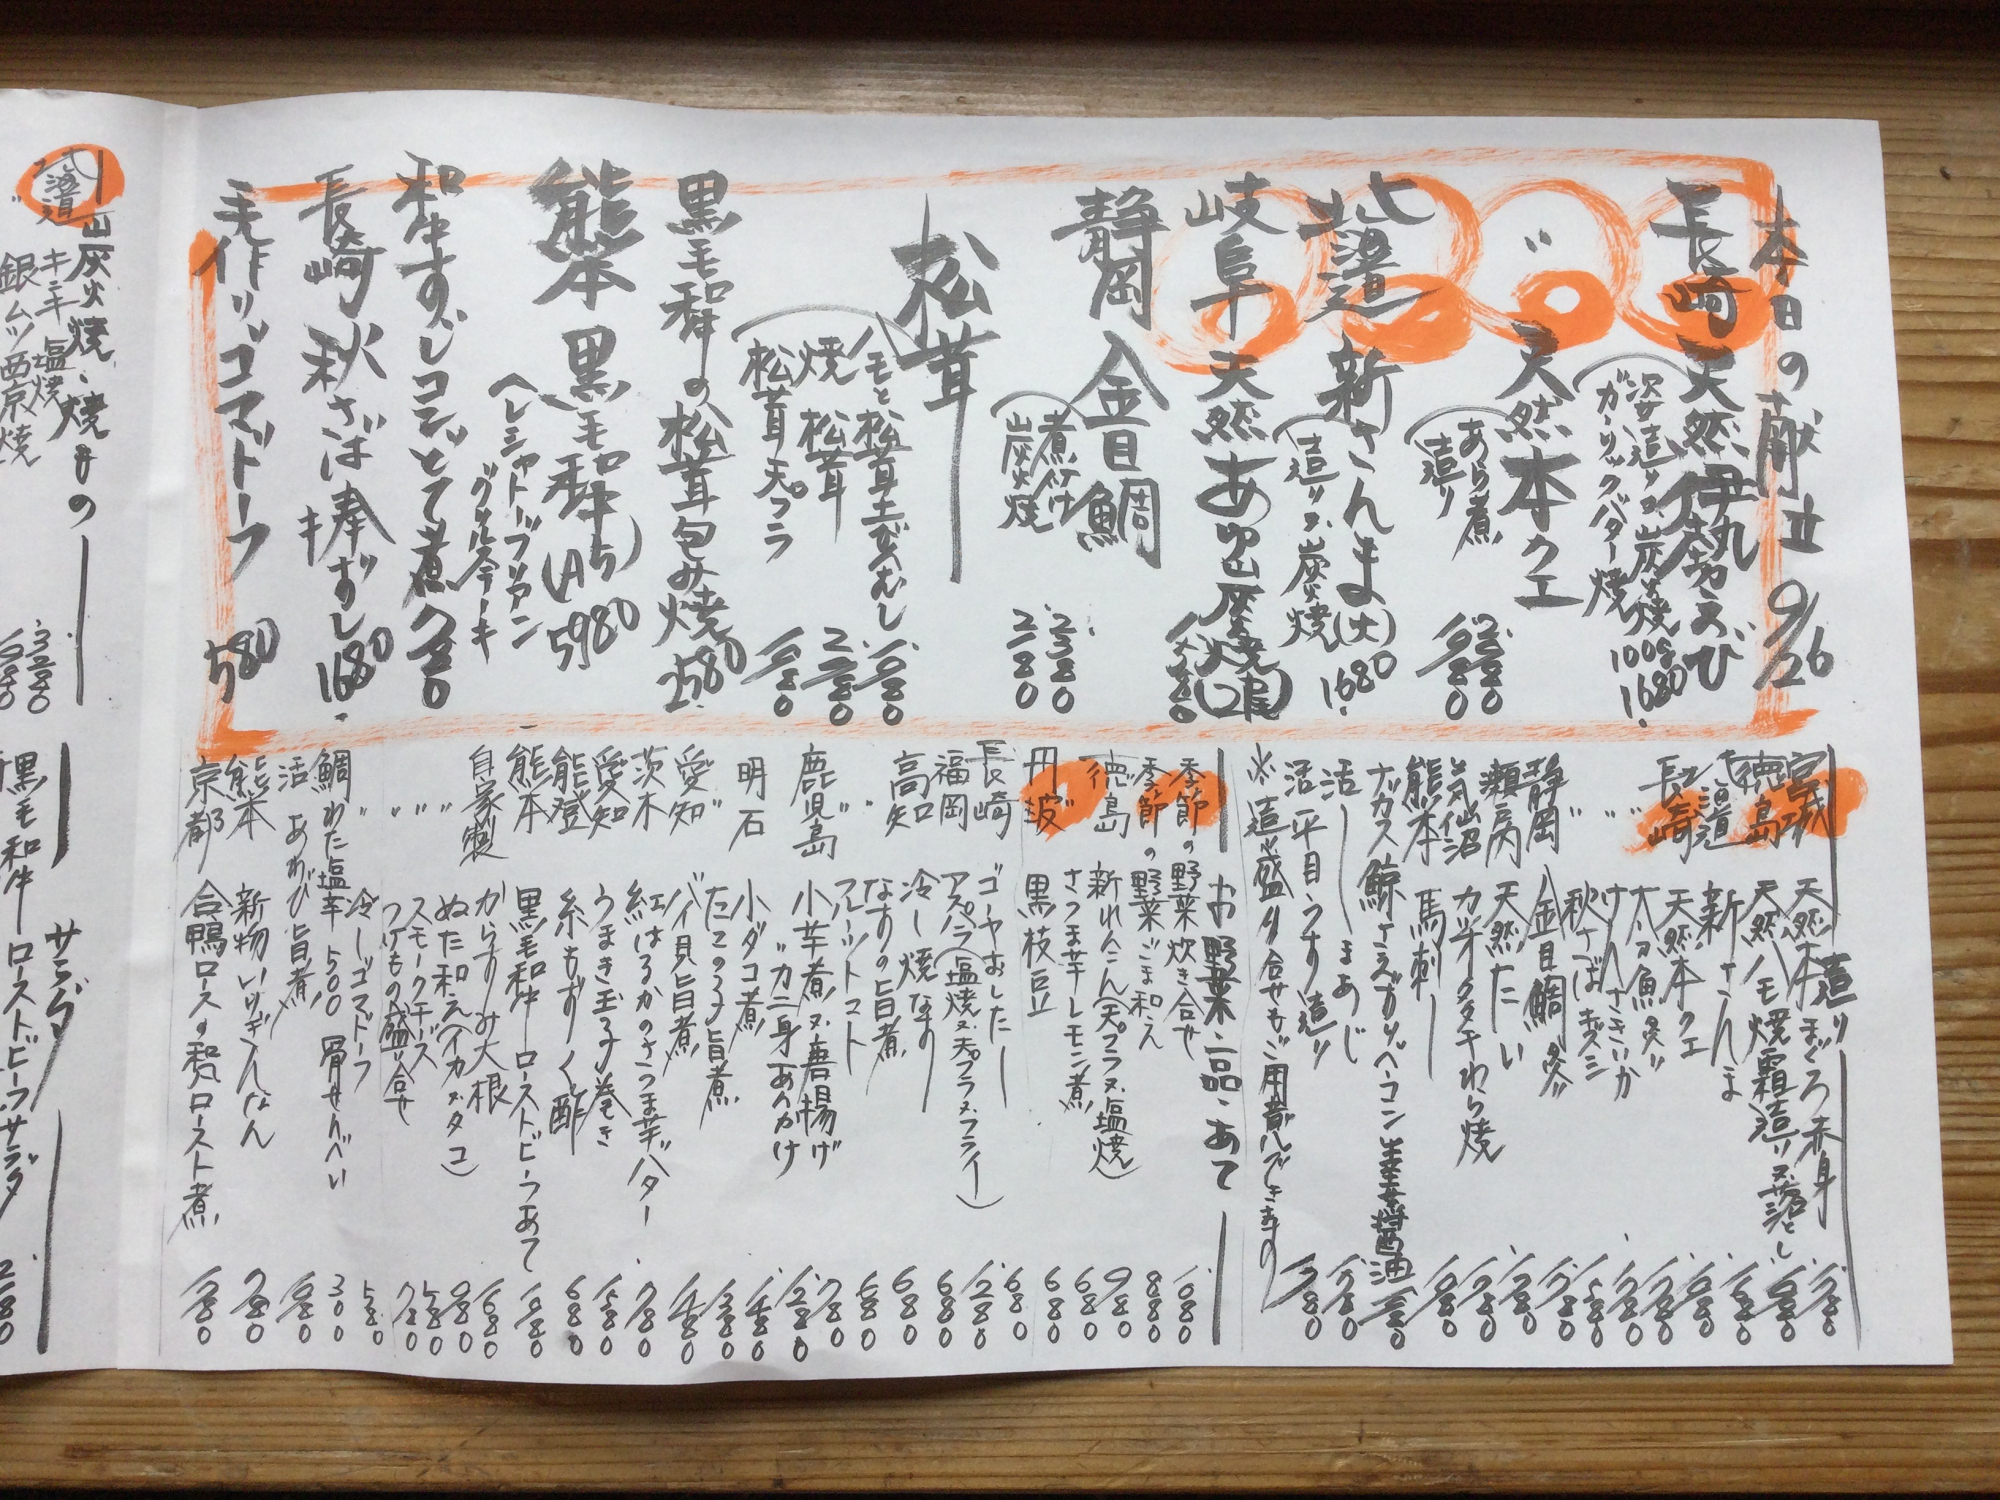 本日の献立 9/26
長崎 天然伊勢えび
姿造り又炭火焼 100g 1680
ガーリックバター焼
〃 天然本クエ
あら煮 2280
造り 1980
北海道 新さんま(大)
造り又炭火焼 1680
岐阜 天然あゆ炭火焼(2尾)
静岡 金目鯛
煮付け 2380
炭火焼 2180
松茸
ハモと松茸土びんむし 1080
焼松茸 2980
松茸天プラ 1980
黒毛和牛の松茸包み焼 2580
熊本 黒毛和牛(A5) 5980
ヘレシャトーブリアン
グリルステーキ
和牛すじコンどて煮 780
長崎 秋さば棒ずし 1680
手作りゴマドーフ 580
造り
宮城 天然本まぐろ赤身
徳島 天然ハモ焼霜造り又落とし
北海道 新さんま
長崎 天然本クエ
〃 太刀魚炙り
〃 秋さばキズシ
静岡 金目鯛炙り
瀬戸内 天然たい
気仙沼 カツオタタキわら焼
熊本 馬刺し
活〆しまあじ
活〆平目うす造り
※造り盛り合せもご用意できます
お野菜・一品・あて
季節の野菜炊き合せ
季節の野菜ごま和え 880
徳島 新れんこん(天プラ又塩焼) 980
さつま芋レモン煮 680
丹波 黒枝豆 680
長崎 ゴーヤおひたし 680
福岡 アスパラ(塩焼又天プラ又フライ) 1280
高知 冷し焼なす 680
〃 なすの旨煮 680
フルーツトマト 780
鹿児島 小芋煮又唐揚げ
〃カニ身あんかけ 1280
明石 小ダコ煮
たこの子旨煮
愛知 バイ貝旨煮
茨木 紅はるかのさつま芋バター 780
愛知 うまき玉子巻き 1580
能登 糸もずく酢 680
熊本 黒毛和牛ローストビーフあて
自家製 からすみ大根 1680
〃 ぬた和え(イカ又タコ) 980
〃 スモークチーズ 580
〃 つけもの盛り合せ 780
冷しゴマドーフ 580
鯛わた塩辛 500 骨せんべい 300
活あわび旨煮
熊本 新物いりぎんなん 780
京都 合鴨ロースの和風ロースト煮
炭火焼・焼きもの
北海道 キンキ塩焼 3280
〃 銀ムツ西京焼
サラダ
黒毛和牛ローストビーフサラダ 2180